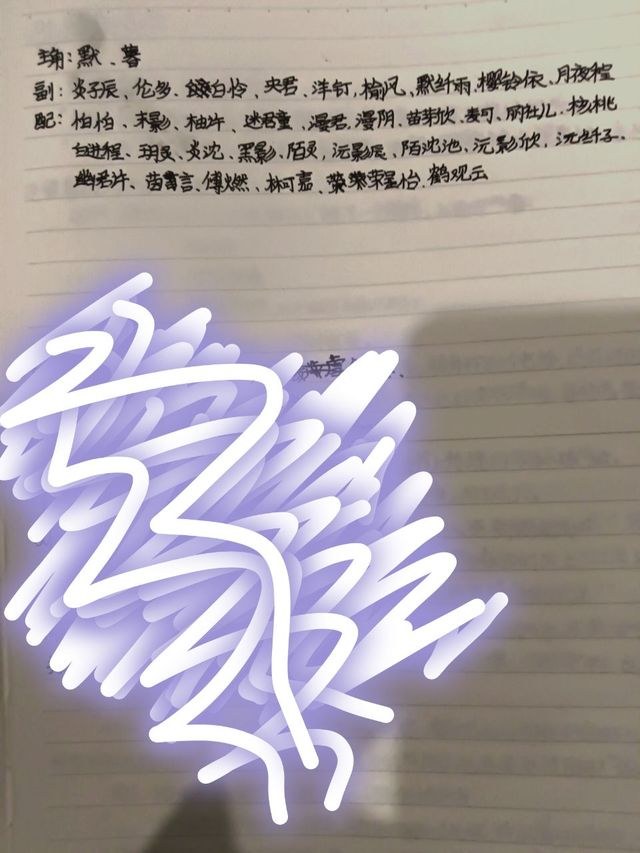 主角:默、暮
副:炎子辰、伦多、白怜、央君、洋钉、榆风、默纤雨、樱铃依、月夜程
配:怕怕、末影、柚许、迷君童、漫君、漫阴、苗芽欣、麦可、丽社儿、核桃
白进程、玥灵、炎沈、黑影、陌灵、沅影辰、陌沈池、沅影欣、沈纤子、
幽君许、茵言、傅燃、林可嘉、荣星怡、鹤观云